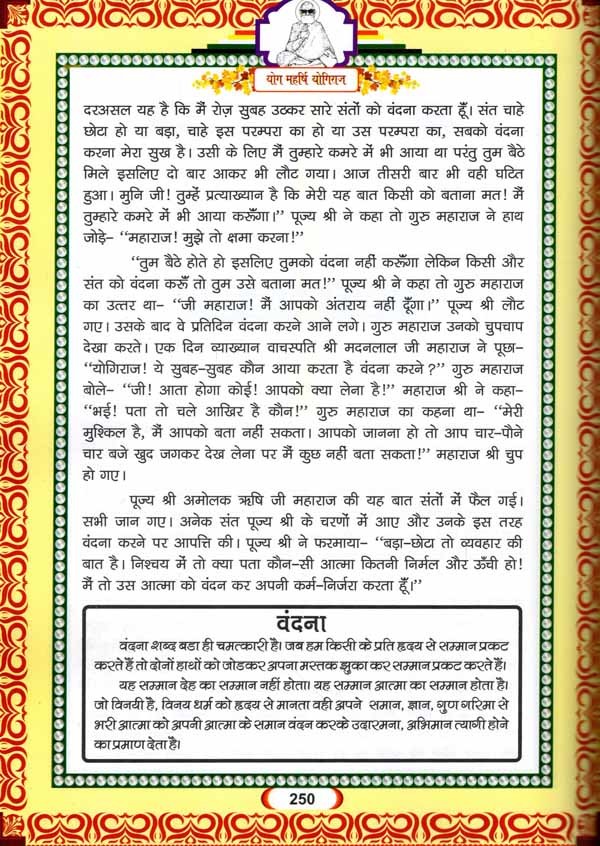 योग महर्षि योगिराज
दरअसल यह है कि मैं रोज़ सुबह उठकर सारे संतों को वंदना करता हूँ। संत चाहे
छोटा हो या बड़ा, चाहे इस परम्परा का हो या उस परम्परा का, सबको वंदना
करना मेरा सुख है। उसी के लिए मैं तुम्हारे कमरे में भी आया था परंतु तुम बैठे
मिले इसलिए दो बार आकर भी लौट गया। आज तीसरी बार भी वही घटित
हुआ। मुनि जी! तुम्हें प्रत्याख्यान है कि मेरी यह बात किसी को बताना मत! मैं
तुम्हारे कमरे में भी आया करूँगा।’’ पूज्य श्री ने कहा तो गुरु महाराज ने हाथ
जोड़े– ‘‘महाराज! मुझे तो क्षमा करना!’’
‘‘तुम बैठे होते हो इसलिए तुमको वंदना नहीं करूँगा लेकिन किसी और
संत को वंदना करूँ तो तुम उसे बताना मत!’’ पूज्य श्री ने कहा तो गुरु महाराज
का उत्तर था– ‘‘जी महाराज! मैं आपको अंतराय नहीं दूँगा।’’ पूज्य श्री लौट
गए। उसके बाद वे प्रतिदिन वंदना करने आने लगे। गुरु महाराज उनको चुपचाप
देखा करते। एक दिन व्याख्यान वाचस्पति श्री मदनलाल जी महाराज ने पूछा–
‘‘योगिराज! ये सुबह–सुबह कौन आया करता है वंदना करने?’’ गुरु महाराज
बोले– ‘‘जी! आता होगा कोई! आपको क्या लेना है!’’ महाराज श्री ने कहा–
‘‘भई! पता तो चले आखिर है कौन!’’ गुरु महाराज का कहना था– ‘‘मेरी
मुश्किल है, मैं आपको बता नहीं सकता। आपको जानना हो तो आप चार–पौने
चार बजे खुद जगकर देख लेना पर मैं कुछ नहीं बता सकता!’’ महाराज श्री चुप
हो गए।
पूज्य श्री अमोलक ऋषि जी महाराज की यह बात संतों में फैल गई।
सभी जान गए। अनेक संत पूज्य श्री के चरणों में आए और उनके इस तरह
वंदना करने पर आपत्ति की। पूज्य श्री ने फरमाया– ‘‘बड़ा–छोटा तो व्यवहार की
बात है। निश्चय में तो क्या पता कौन–सी आत्मा कितनी निर्मल और ऊँची हो!
मैं तो उस आत्मा को वंदन कर अपनी कर्म–निर्जरा करता हूँ।’’
वंदना
वंदना शब्द बडा ही चमत्कारी है। जब हम किसी के प्रति हृदय से सम्मान प्रकट
करते हैं तो दोनों हाथों को जोडकर अपना मस्तक झुका कर सम्मान प्रकट करते हैं।
यह सम्मान देह का सम्मान नहीं होता। यह सम्मान आत्मा का सम्मान होता है।
जो विनयी है, विनय धर्म को हृदय से मानता वही अपने समान, ज्ञान, गुण गरिमा से
भरी आत्मा को अपनी आत्मा के समान वंदन करके उदारमना, अभिमान त्यागी होने
का प्रमाण देता है।
250